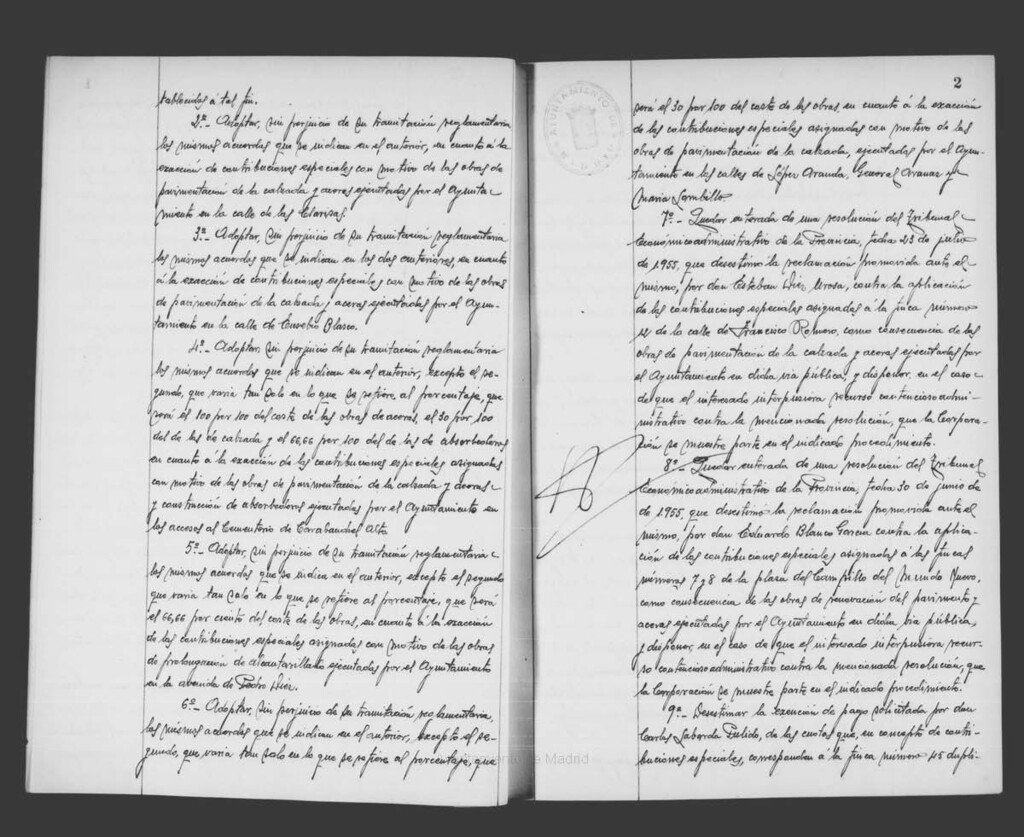 tablecidos á tal fin.
2º.- Adoptar, sin perjuicio de su tramitación reglamentaria
los mismos acuerdos que se indican en el anterior, en cuanto á la
exacción de contribuciones especiales con motivo de las obras de
pavimentación de la calzada y aceras ejecutadas por el Ayunta
miento en la calle de las Clarisas.
3º.- Adoptar, sin perjuicio de su tramitación reglamentaria
los mismos acuerdos que se indican en los dos anteriores, en cuanto
á la exacción de contribuciones especiales con motivo de las obras
de pavimentación de la calzada y aceras ejecutadas por el Ayun-
tamiento en la calle de Eusebio Blasco.
4º.- Adoptar, sin perjuicio de su tramitación reglamentaria
los mismos acuerdos que se indican en el anterior, excepto el se-
gundo, que varía tan solo en lo que se refiere al porcentaje, que
será el 100 por 100 del coste de las obras de aceras, el 30 por 100
del de las de calzada y el 66,66 por 100 del de las de absorbederos
en cuanto á la exacción de las contribuciones especiales asignadas
con motivo de las obras de pavimentación de la calzada y aceras
y construcción de absorbederos ejecutadas por el Ayuntamiento en
los accesos al Cementerio de Carabanchel Alto
5º.- Adoptar, sin perjuicio de su tramitación reglamentaria
los mismos acuerdos que se indica en el anterior, excepto el segundo
que varía tan solo en lo que se refiere al porcentaje, que será
el 66,66 por ciento del coste de las obras, en cuanto á la exacción
de las contribuciones especiales asignadas con motivo de las obras
de prolongación de alcantarillado ejecutadas por el Ayuntamiento
en la avenida de Pedro Díez.
6º.- Adoptar, sin perjuicio de su tramitación reglamentaria,
los mismos acuerdos que se indican en el anterior, excepto el se-
gundo, que varía tan solo en lo que se refiere al porcentaje, que
2
será el 30 por 100 del coste de las obras en cuanto á la exacción
de las contribuciones especiales asignadas con motivo de las
obras de pavimentación de la calzada, ejecutadas por el Ayun-
tamiento en las calles de López Aranda, General Aranaz y
María Lombillo.
7º.- Quedar enterada de una resolución del Tribunal
Económicoadministrativo de la Provincia, fecha 23 de julio
de 1.955, que desestimó la reclamación promovida ante el
mismo, por don Esteban Díez Urosa, contra la aplicación
de las contribuciones especiales asignadas á la finca número
de la calle de Francisco Romero, como consecuencia de las
obras de pavimentación de la calzada y aceras ejecutadas por
el Ayuntamiento en dicha vía pública; y disponer, en el caso
de que el interesado interpusiera recurso contenciosoadmi-
nistrativo contra la mencionada resolución, que la Corpora-
ción se muestre parte en el indicado procedimiento.
8º.- Quedar enterada de una resolución del Tribunal
Económicoadministrativo de la Provincia, fecha 30 de junio de
de 1.955, que desestimó la reclamación promovida ante el
mismo, por don Eduardo Blanco García contra la aplica-
ción de las contribuciones especiales asignadas á las fincas
números 7 y 8 de la plaza del Campillo del Mundo Nuevo,
como consecuencia de las obras de renovación del pavimento y
aceras ejecutadas por el Ayuntamiento en dicha vía pública,
y disponer, en el caso de que el interesado interpusiera recur-
so contenciosoadministrativo contra la mencionada resolución, que
la Corporación se muestre parte en el indicado procedimiento.
9º.- Desestimar la exención de pago solicitada por don
Carlos Laborda Pulido, de las cuotas que, en concepto de contri-
buciones especiales, corresponden á la finca número 45 dupli-